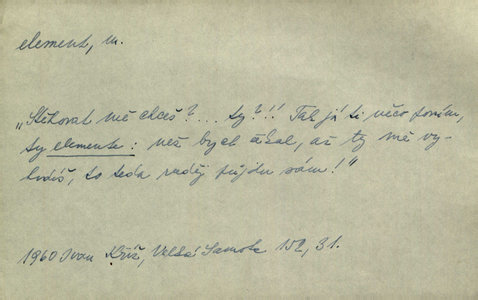 element, m.
„Stěhovat mě chceš?... ty?!! Tak já ti něco povím,
ty elemente: než bych čekal, až ty mě vy-
hodíš, to teda raděj půjdu sám!"
1960 Ivan Kříž, Velká Samota 152, 31.